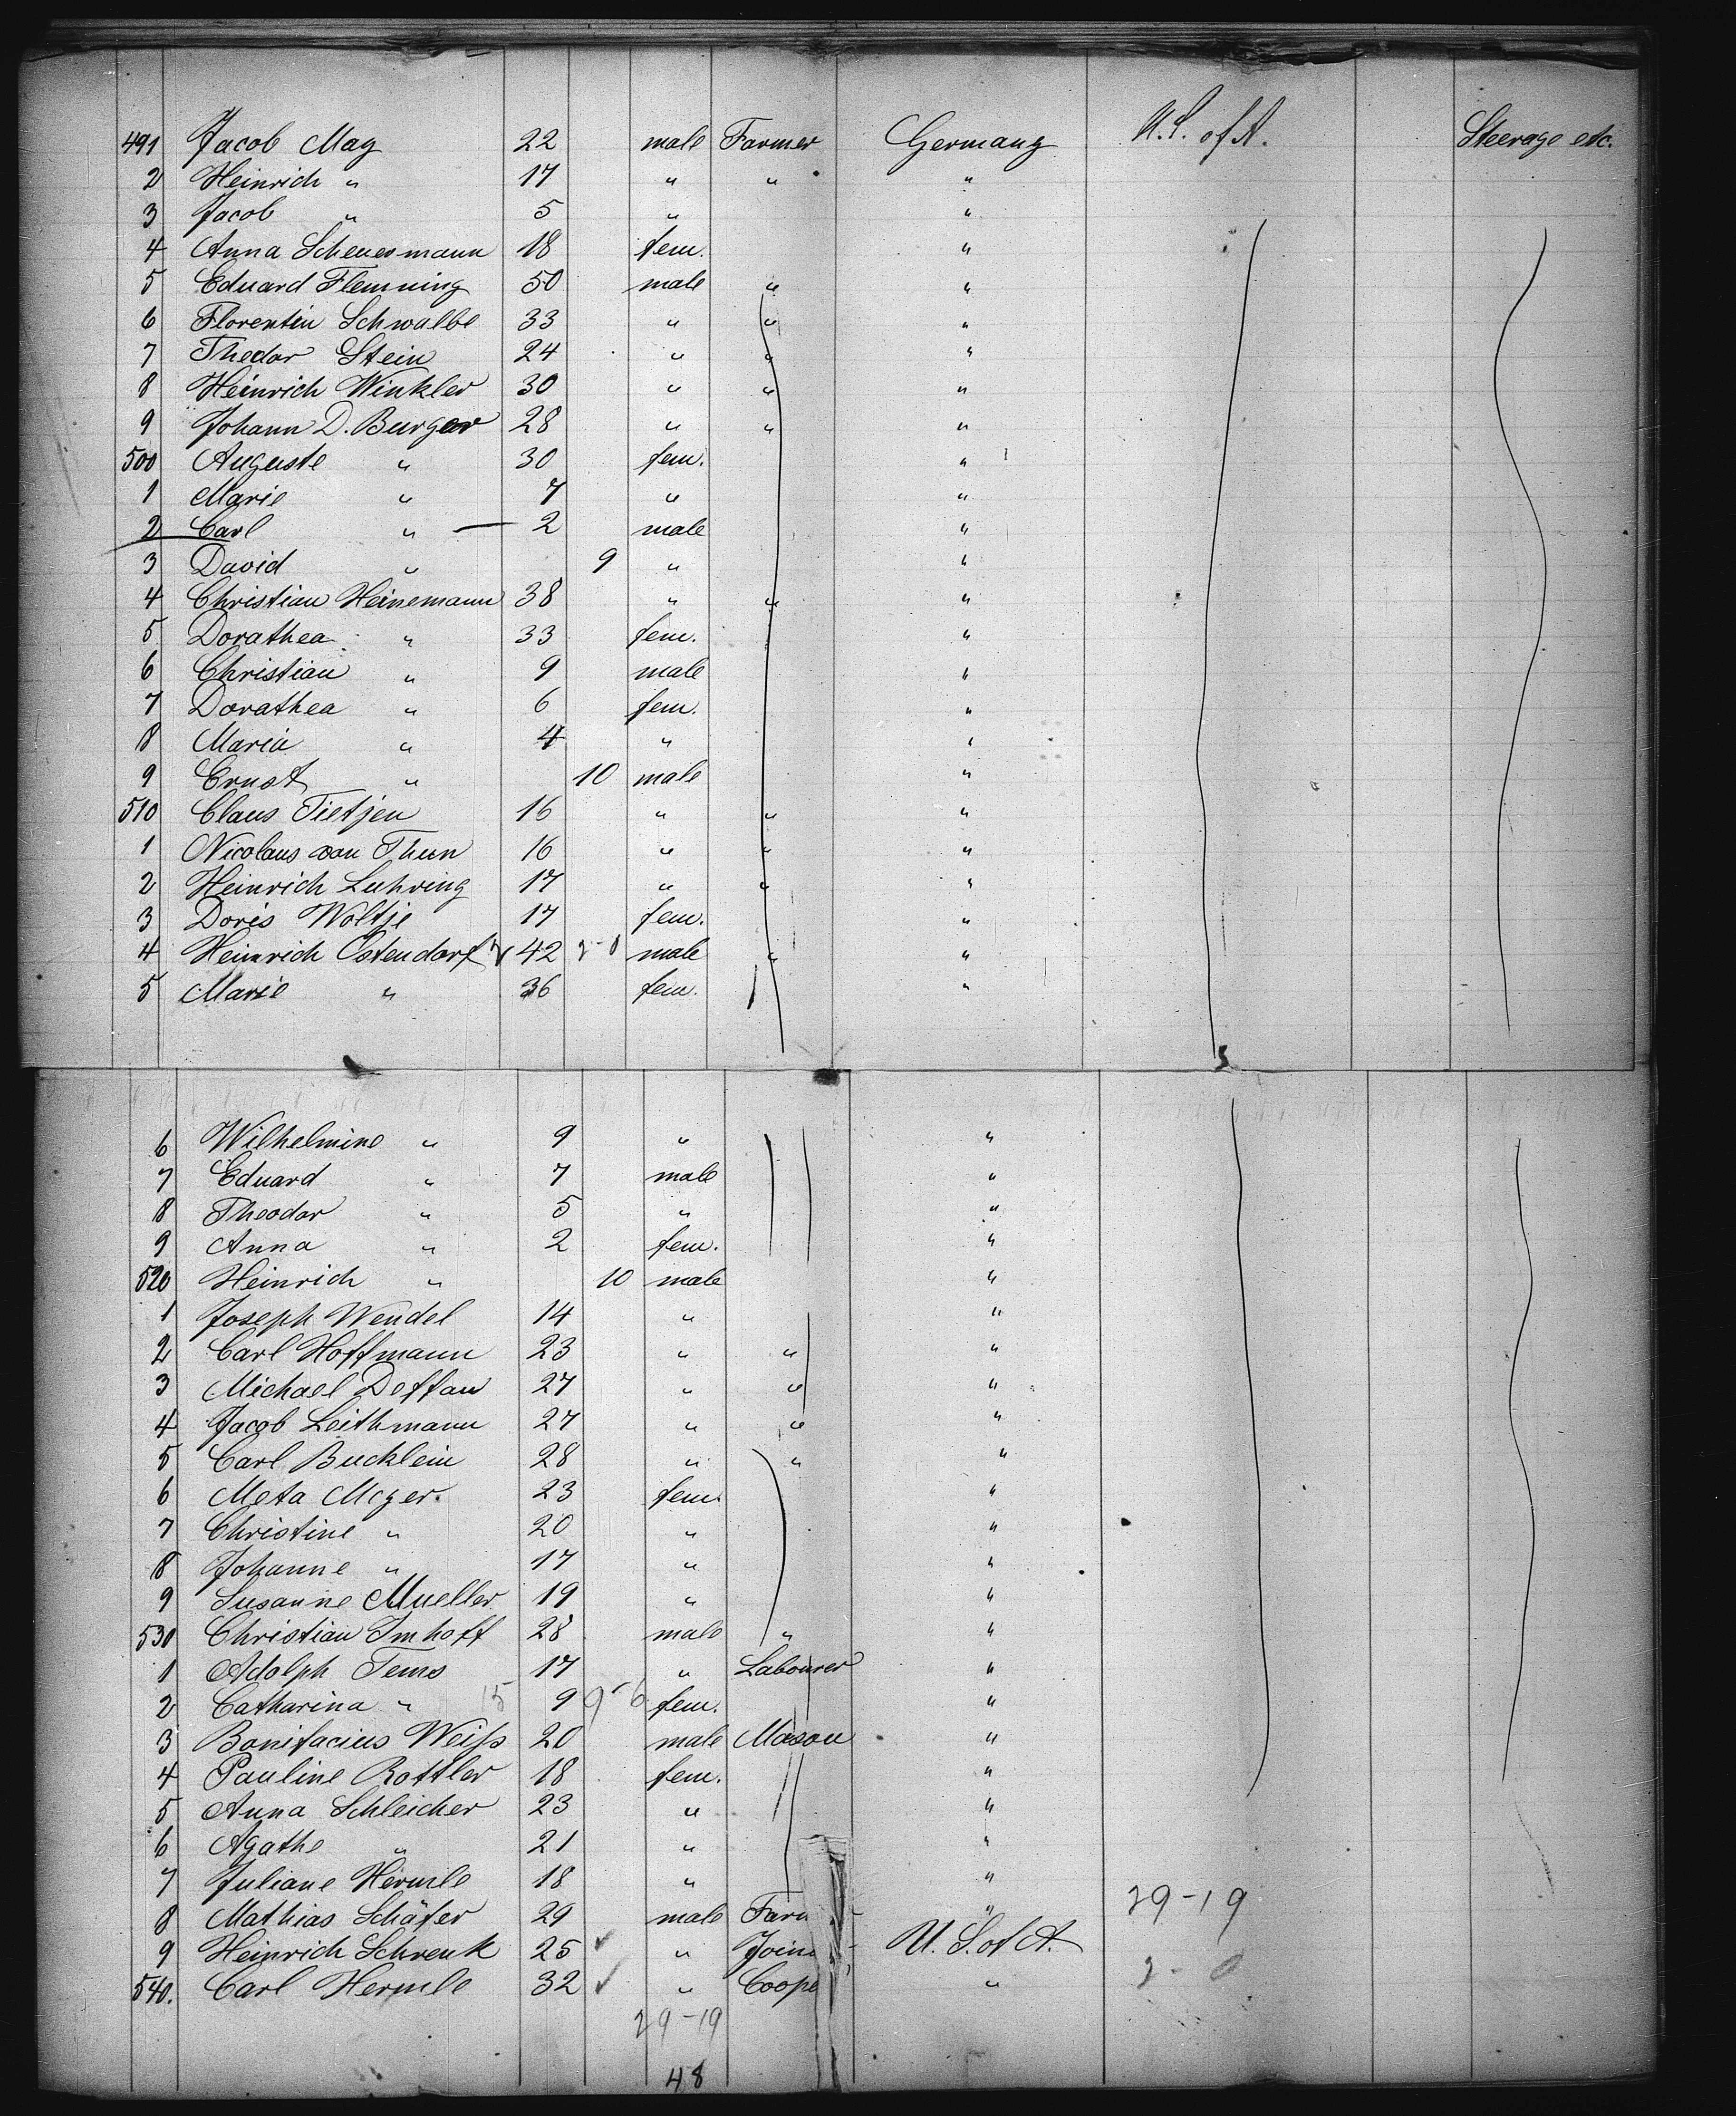 491 Jacob May 22 male Farmer Germany U.S. of A. Steerage etc.
2 Heinrich " 17 " " "
3 Jacob " 5 " "
4 Anna Scheuesmann 18 fem. "
5 Eduard Flemming 50 male " "
6 Florentin Schwalbe 33 " " "
7 Thedor Stein 24 " " "
8 Heinrich Winkler 30 " " "
9 Johann D. Burger 28 " " "
500 Auguste " 30 fem. "
1 Marie " 7 " "
2 Carl " 2 male "
3 David " 9 " "
4 Christian Heinemann 38 " " "
5 Dorathea " 33 fem. "
6 Christian " 9 male "
7 Dorathea " 6 fem. "
8 Maria " 4 " "
9 Ernst " 10 male "
510 Claus Tietjen 16 " " "
1 Nicolaus von Thun 16 " " "
2 Heinrich Luhring 17 " " "
3 Doris Woltje 17 fem. "
4 Heinrich Ostendorf 42 male " "
5 Marie " 36 fem. "
6 Wilhelmine " 9 " "
7 Eduard " 7 male "
8 Theodor " 5 " "
9 Anna " 2 fem. "
520 Heinrich " 10 male "
1 Joseph Wendel 14 " "
2 Carl Hoffmann 23 " " "
3 Michael Deffau 27 " " "
4 Jacob Leithmann 27 " " "
5 Carl Bucklein 28 " " "
6 Meta Meyer. 23 fem. "
7 Christine " 20 " "
8 Johanne " 17 " "
9 Susanne Mueller 19 " "
530 Christian Imhoff 28 male " "
1 Adolph Tems 17 " Labourer "
2 Catharina " 15 9 9-6 fem. "
3 Bonifacius Weiß 20 male Mason "
4 Pauline Rottler 18 fem. "
5 Anna Schleicher 23 " "
6 Agathe " 21 " "
7 Juliane Hermle 18 " "
8 Mathias Schäfer 29 male Farm " 29-19
9 Heinrich Schrenk 25 " Join U. S. of A.
540. Carl Hermle 32 " Coope " 2-0
29-19
48